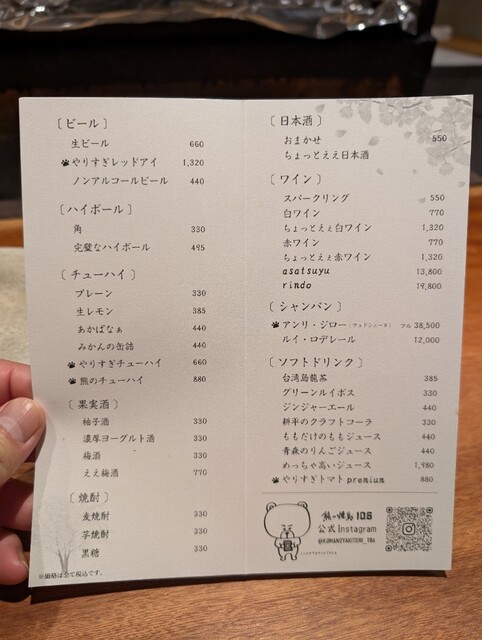 〔ビール〕
生ビール 660
やりすぎレッドアイ 1,320
ノンアルコールビール 440
〔ハイボール〕
角 330
完璧なハイボール 495
〔チューハイ〕
プレーン 330
生レモン 385
あかばなぁ 440
みかんの缶詰 440
やりすぎチューハイ 660
熊のチューハイ 880
〔果実酒〕
柚子酒 330
濃厚ヨーグルト酒 330
梅酒 330
ええ梅酒 770
〔焼酎〕
麦焼酎 330
芋焼酎 330
黒糖 330
※価格は全て税込です。
〔日本酒〕
おまかせ 550
ちょっとええ日本酒
〔ワイン〕
スパークリング 550
白ワイン 770
ちょっとええ白ワイン 1,320
赤ワイン 770
ちょっとええ赤ワイン 1,320
asatsuyu 13,800
rindo 19,800
〔シャンパン〕
アンリ・ジロー フル 38,500
ルイ・ロデレール 12,000
〔ソフトドリンク〕
台湾烏龍茶 385
グリーンルイボス 330
ジンジャーエール 440
耕平のクラフトコーラ 330
ももだけのももジュース 440
青森のりんごジュース 440
めっちゃ高いジュース 1,980
やりすぎトマトpremium 880
熊の焼鳥 106
公式 Instagram
@KUMANOYAKITORI_106